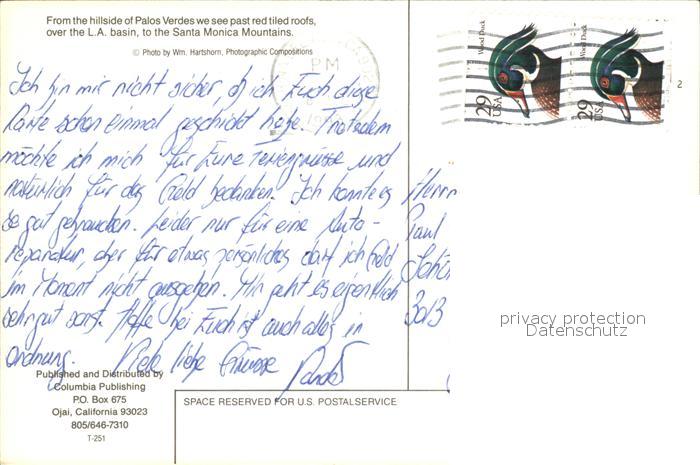 From the hillside of Palos Verdes we see past red tiled roofs,
over the L.A. basin, to the Santa Monica Mountains.
© Photo by Wm. Hartshorn, Photographic Compositions
PM
Wood Duck
29
USA
Wood Duck
29
USA
2
Ich bin mir nicht sicher, ob ich Euch diese
Karte schon einmal geschickt habe. Trotzdem
möchte ich mich für Eure Feriengrüsse und
natürlich für das Geld bedanken. Ich konnte es
so gut gebrauchen. Leider nur für eine Auto-
reparatur, aber für etwas persönliches darf ich Geld
im Moment nicht ausgeben. Mir geht es eigentlich
sehr gut sonst. Hoffe bei Euch ist auch alles in
Ordnung. Viele liebe Grüsse
Herrn
Paul
3013
privacy protection
Datenschutz
Published and Distributed by
Columbia Publishing
P.O. Box 675
Ojai, California 93023
805/646-7310
T-251
SPACE RESERVED FOR U.S. POSTALSERVICE